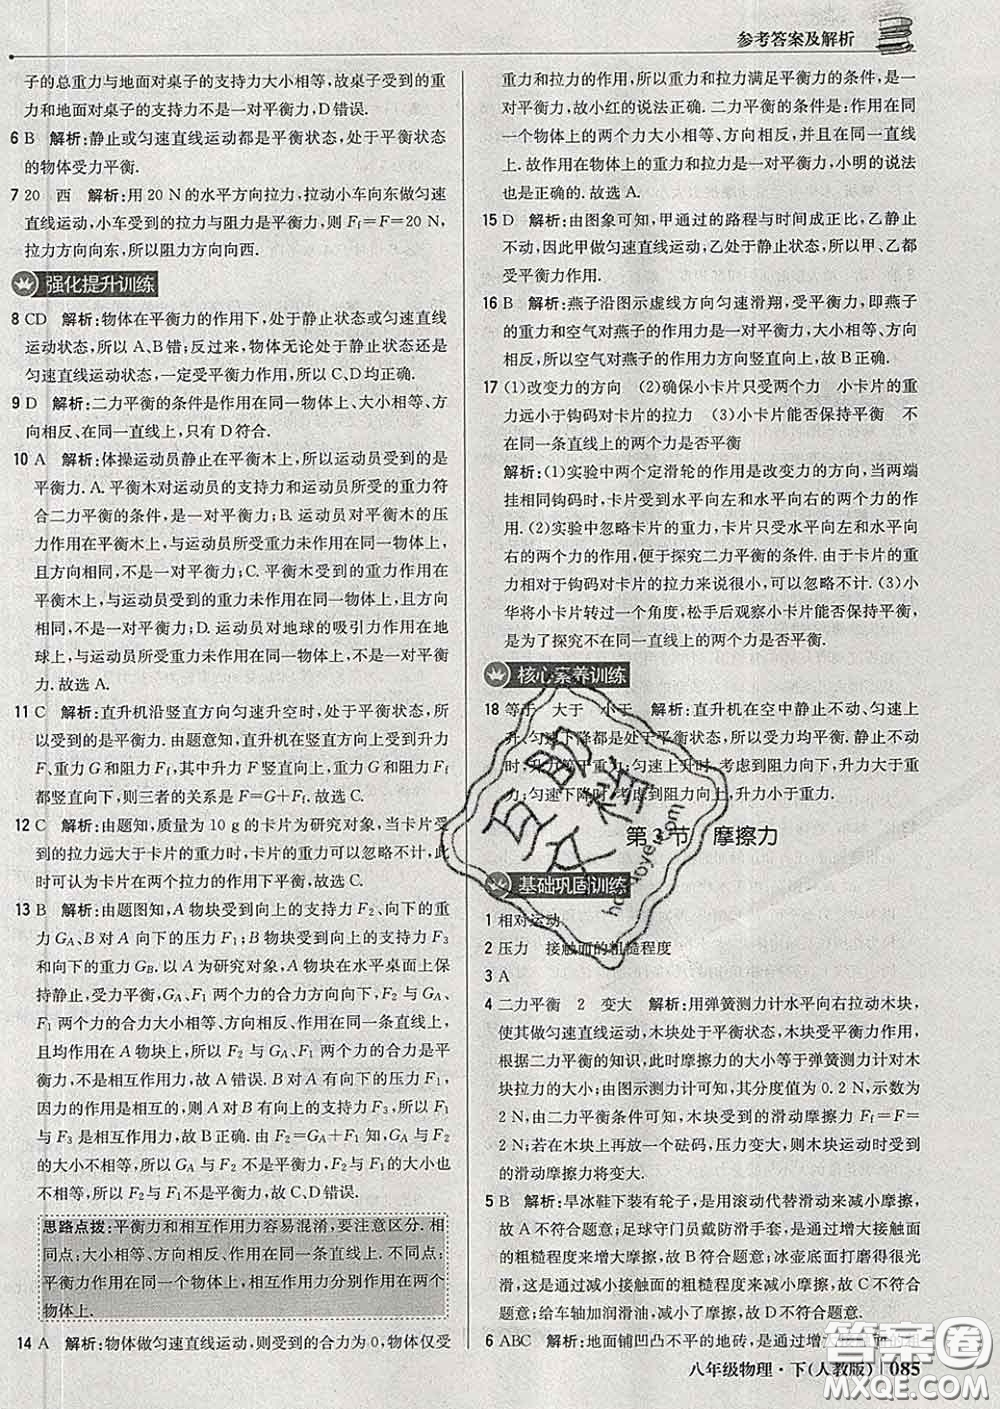 参考答案及解析
子的总重力与地面对桌子的支持力大小相等,故桌子受到的重
力和地面对桌子的支持力不是一对平衡力,D错误.
6 B 解析:静止或匀速直线运动都是平衡状态,处于平衡状态
的物体受力平衡.
7 20 西 解析:用 20 N 的水平方向拉力,拉动小车向东做匀速
直线运动,小车受到的拉力与阻力是平衡力,则 Ff=F=20 N,
拉力方向向东,所以阻力方向向西.
强化提升训练
8 CD 解析:物体在平衡力的作用下,处于静止状态或匀速直线
运动状态,所以 A、B 错;反过来,物体无论处于静止状态还是
匀速直线运动状态,一定受平衡力作用,所以 C、D 均正确.
9 D 解析:二力平衡的条件是作用在同一物体上、大小相等、方
向相反、在同一直线上,只有 D 符合.
10 A 解析:体操运动员静止在平衡木上,所以运动员受到的是
平衡力. A. 平衡木对运动员的支持力和运动员所受的重力符
合二力平衡的条件,是一对平衡力;B. 运动员对平衡木的压
力作用在平衡木上,与运动员所受重力未作用在同一物体上,
且方向相同,不是一对平衡力;C. 平衡木受到的重力作用在平
衡木上,与运动员受到的重力未作用在同一物体上,且方向
相同,不是一对平衡力;D. 运动员对地球的吸引力作用在地
球上,与运动员所受重力未作用在同一物体上,不是一对平衡
力. 故选 A.
11 C 解析:直升机沿竖直方向匀速升空时,处于平衡状态,所
以受到的是平衡力. 由题意知,直升机在竖直方向上受到升力
F、重力 G 和阻力 Ff,其中升力 F 竖直向上,重力 G 和阻力 Ff
都竖直向下,则三者的关系是 F=G+Ff. 故选 C.
12 C 解析:由题知,质量为 10 g 的卡片为研究对象,当卡片受
到的拉力远大于卡片的重力时,卡片的重力可以忽略不计,此
时可认为卡片在两个拉力的作用下平衡,故选 C.
13 B 解析:由题图知,A 物块受到向上的支持力 F2、向下的重
力 GA、B 对 A 向下的压力 F1;B 物块受到向上的支持力 F3
和向下的重力 GB. 以 A 为研究对象,物块在水平桌面上保
持静止,受力平衡,GA、F1 两个力的合力方向向下,F2、GA、
F1 两个力的合力大小相等、方向相反、且在同一条直线上,
且均作用在 A 物块上,所以 F2 与 GA、F1 两个力的合力是平
衡力,不是相互作用力,故 A 错误. B 对 A 有向下的压力 F1,
因力的作用是相互的,则 A 对 B 有向上的支持力 F3,所以 F1
与 F3 是相互作用力,故 B 正确. 由 F2=GA+F1 知,GA 与 F2
的大小不相等,所以 GA 与 F2 不是平衡力,GA 与 F1 的大小也
不相等,所以 F1 与 F2 不是平衡力,故 C、D 错误.
思路点拨:平衡力和相互作用力容易混淆,要注意区分. 相
同点:大小相等、方向相反、作用在同一条直线上. 不同点:
平衡力作用在同一个物体上,相互作用力分别作用在两个
物体上.
14 A 解析:物体做匀速直线运动,则受到的合力为 0,物体仅受
重力和拉力的作用,所以重力和拉力满足平衡力的条件,是一
对平衡力,故小红的说法正确. 二力平衡的条件是:作用在同
一个物体上的两个力大小相等、方向相反,并且在同一直线
上. 故作用在物体上的重力和拉力是一对平衡力,小明的说法
也是正确的. 故选 A.
15 D 解析:由图象可知,甲通过的路程与时间成正比,乙静止
不动,因此甲做匀速直线运动;乙处于静止状态,所以甲、乙都
受平衡力作用.
16 B 解析:燕子沿图示虚线方向匀速滑翔,受平衡力,即燕子
的重力和空气对燕子的作用力是一对平衡力,大小相等、方向
相反,所以空气对燕子的作用力方向竖直向上,故 B 正确.
17 (1)改变力的方向 (2)确保小卡片只受两个力 小卡片的重
力远小于钩码对卡片的拉力 (3)小卡片能否保持平衡 不
在同一条直线上的两个力是否平衡
解析:(1)实验中两个定滑轮的作用是改变力的方向,当两端
挂相同钩码时,卡片受到水平向左和水平向右的两个力的作
用. (2)实验中忽略卡片的重力,卡片只受水平向左和水平向
右的两个力的作用,便于探究二力平衡的条件. 由于卡片的重
力相对于钩码对卡片的拉力来说很小,可以忽略不计. (3)小
华将小卡片转过一个角度,松手后观察小卡片能否保持平衡,
是为了探究不在同一直线上的两个力是否平衡.
核心素养训练
18 等于 大于 小于 解析:直升机在空中静止不动、匀速上
升、匀速下降都是处于平衡状态,所以受力平衡. 当静止不动
时,升力等于重力;匀速上升时,考虑到阻力向下,升力大于重
力;匀速下降时,考虑到阻力向上,升力小于重力.
第 3 节 摩擦力
基础巩固训练
1 相对运动
2 压力 接触面的粗糙程度
3 A
4 二力平衡 2 变大 解析:用弹簧测力计水平向右拉动木块,
使其做匀速直线运动,木块处于平衡状态,木块受平衡力作用,
根据二力平衡的知识,此时摩擦力的大小等于弹簧测力计对木
块拉力的大小;由图示测力计可知,其分度值为 0.2 N,示数为
2 N,由二力平衡条件可知,木块受到的滑动摩擦力 Ff=F=
2 N;若在木块上再放一个砝码,压力变大,则木块运动时受到
的滑动摩擦力将变大.
5 B 解析:旱冰鞋下装有轮子,是用滚动代替滑动来减小摩擦,
故 A 不符合题意;足球守门员戴防滑手套,是通过增大接触面
的粗糙程度来增大摩擦,故 B 符合题意;冰壶底面打磨得很光
滑,这是通过减小接触面的粗糙程度来减小摩擦,故 C 不符合
题意;给车轴加润滑油,减小了摩擦,故 D 不符合题意.
6 ABC 解析:地面铺凹凸不平的地砖,是通过增大
八年级物理·下(人教版) 085
答案卷
MXQE.COM